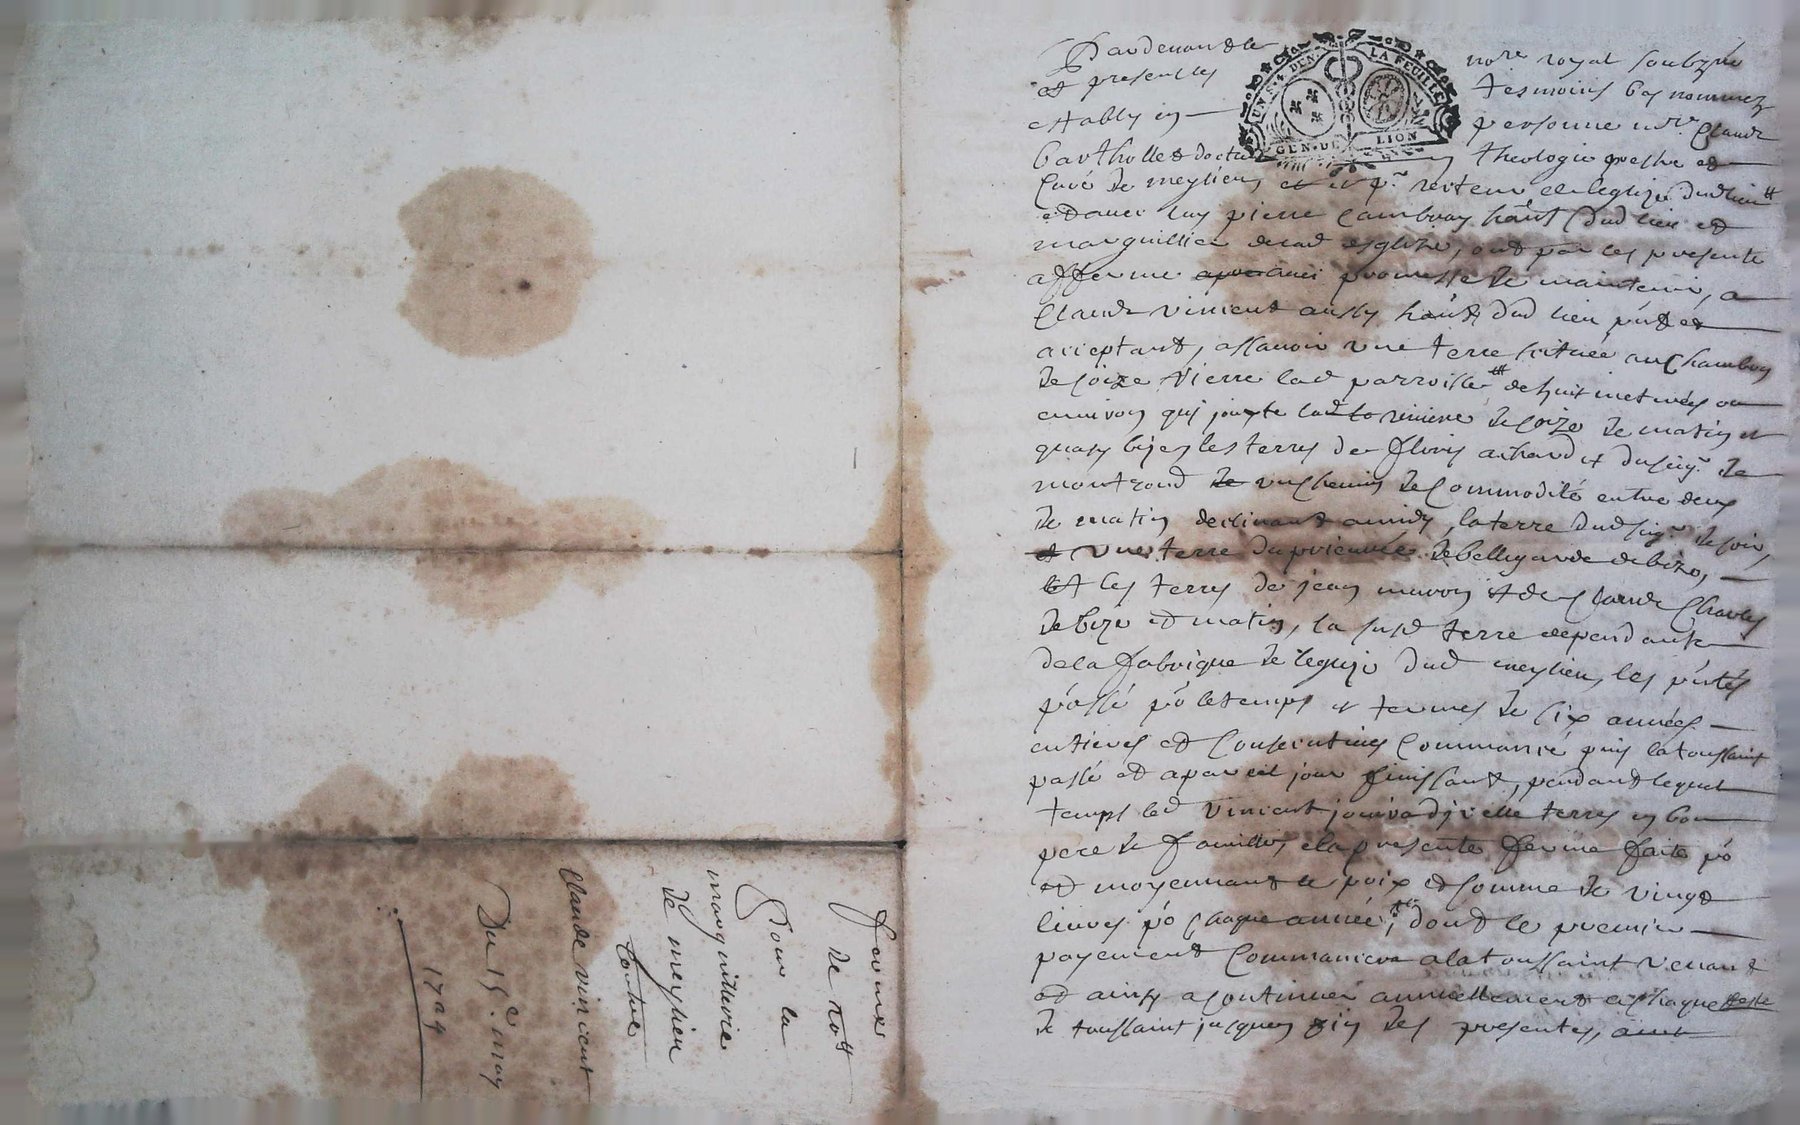 Pardevant le notre royal soubzné
et presents les tesmoins bas nommez
estably en personne mre Claude
Bartholle docteur theologie prestre et
Curé de meylieu, et recteur de leglize dud lieu
et avec luy pierre Cambray hant dud lieu et
marguillier de lad esglize, ont par les presente
afferme promesse de maintenir, a
Claude vincent aussy hant dud lieu pnt et
acceptant, assavoir une terre scituée au Chambon
de Loize Vierre lad parroisse de huit metarées ou
environ qui jouxte la riviere de Loize de matin et
quasy bize les terres de fleury achard et du seigr de
montrond un chemin de Commodité entre deux
de matin declinant a midy, la terre dud seigr de soir,
une terre du prieuré de bellegarde de bize,
et les terres de jean et de Claude Charles
de bize et matin, la susd terre dependante
de la fabrique de leglize dud meylieu, les pntes
passé po le temps et termes de six années
entieres et Consecutives Commancé puis la toussaint
passé et a pareil jour finissant, pendant lequel
temps led Vincent jouira d'icelle terres en bon
pere de famille, la presente ferme faite po
et moyennant le prix et somme de vingt
livres po chaque année, dont le premier
payement Commancera a la toussaint venant
et ainsy a continuer annuellement a chaque feste
de toussaint jusques fin des presentes,
UN S. 4 DEN. LA FEUILLE
GEN. DE LION
ferme
de 20 tt
Pour la
marguillerie
de meylieu
Contre
Claude vincent
Du 15e may
1729